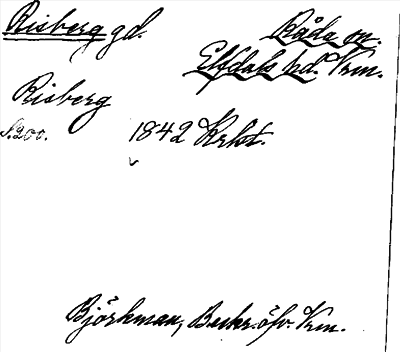 Risberg gd. Råda sn.
Elfdals hd. Vrm.
Risberg
S. 200. 1842 Krkt.
Björkman, Beskr. öfv. Vrm.